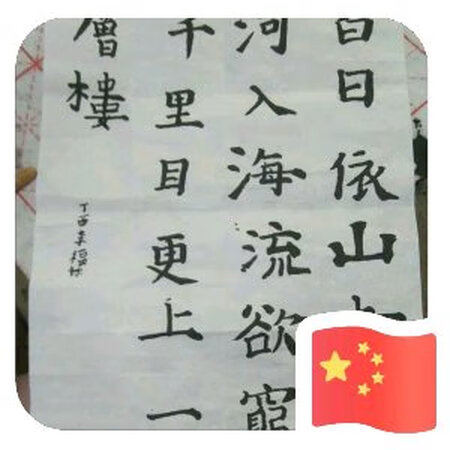 白日依山
河入海流欲窮
千里目更上一
層樓
丁酉